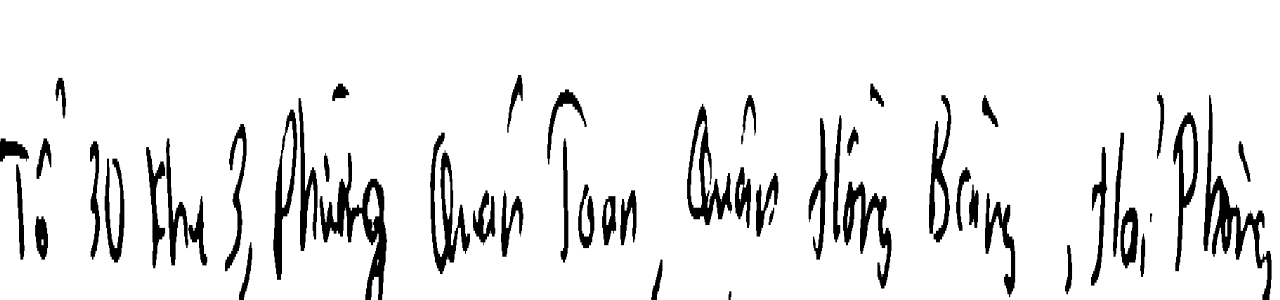 Tổ 30 Khu 3, Phường Quán Toan, Quận Hồng Bàng, Hải Phòng